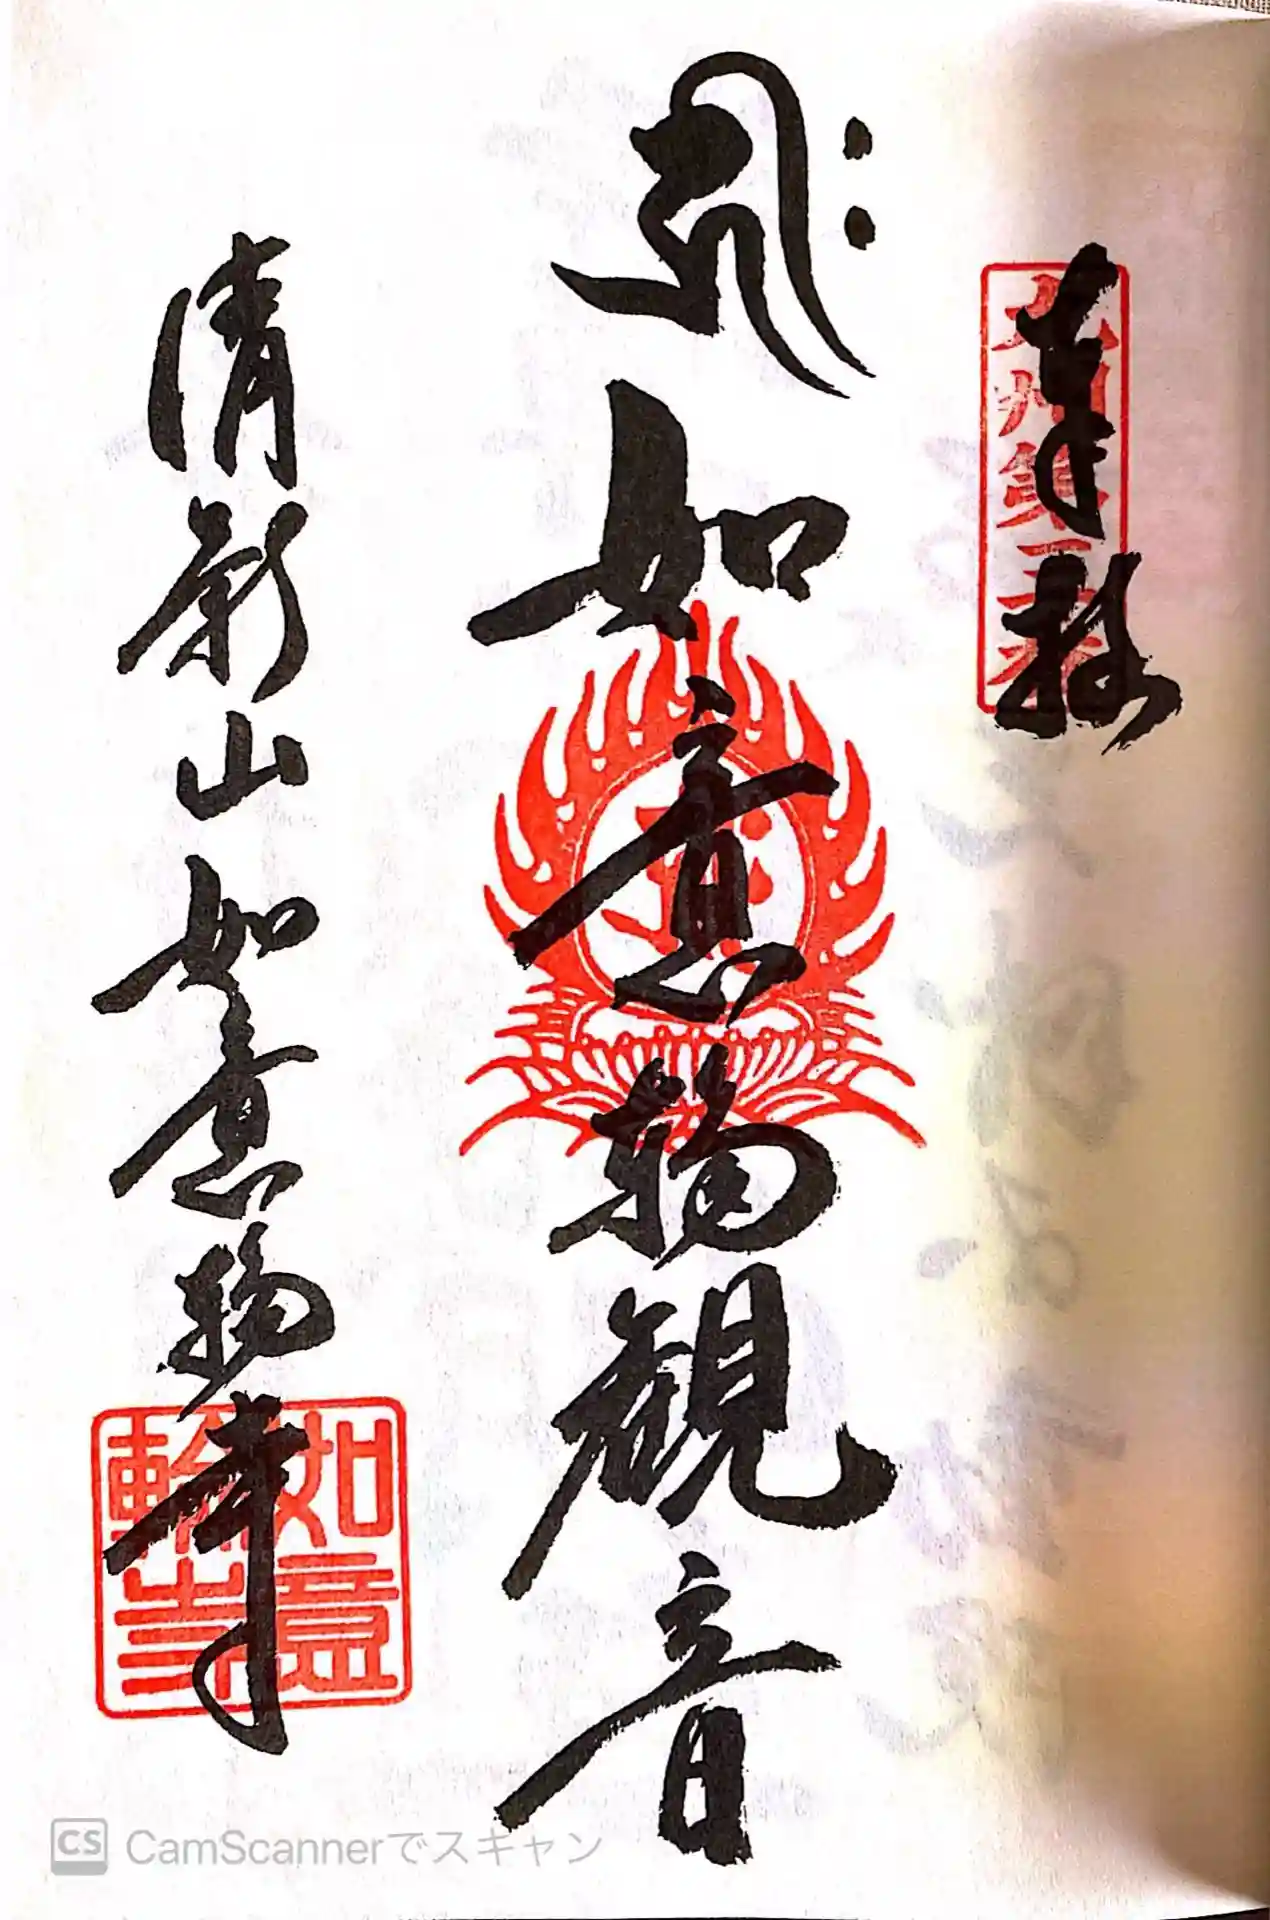 奉拝
九州第三番
𑖮𑖿𑖨𑖱𑖾
如意輪観音
清影山如意輪寺
如意
輪寺
CS CamScannerでスキャン